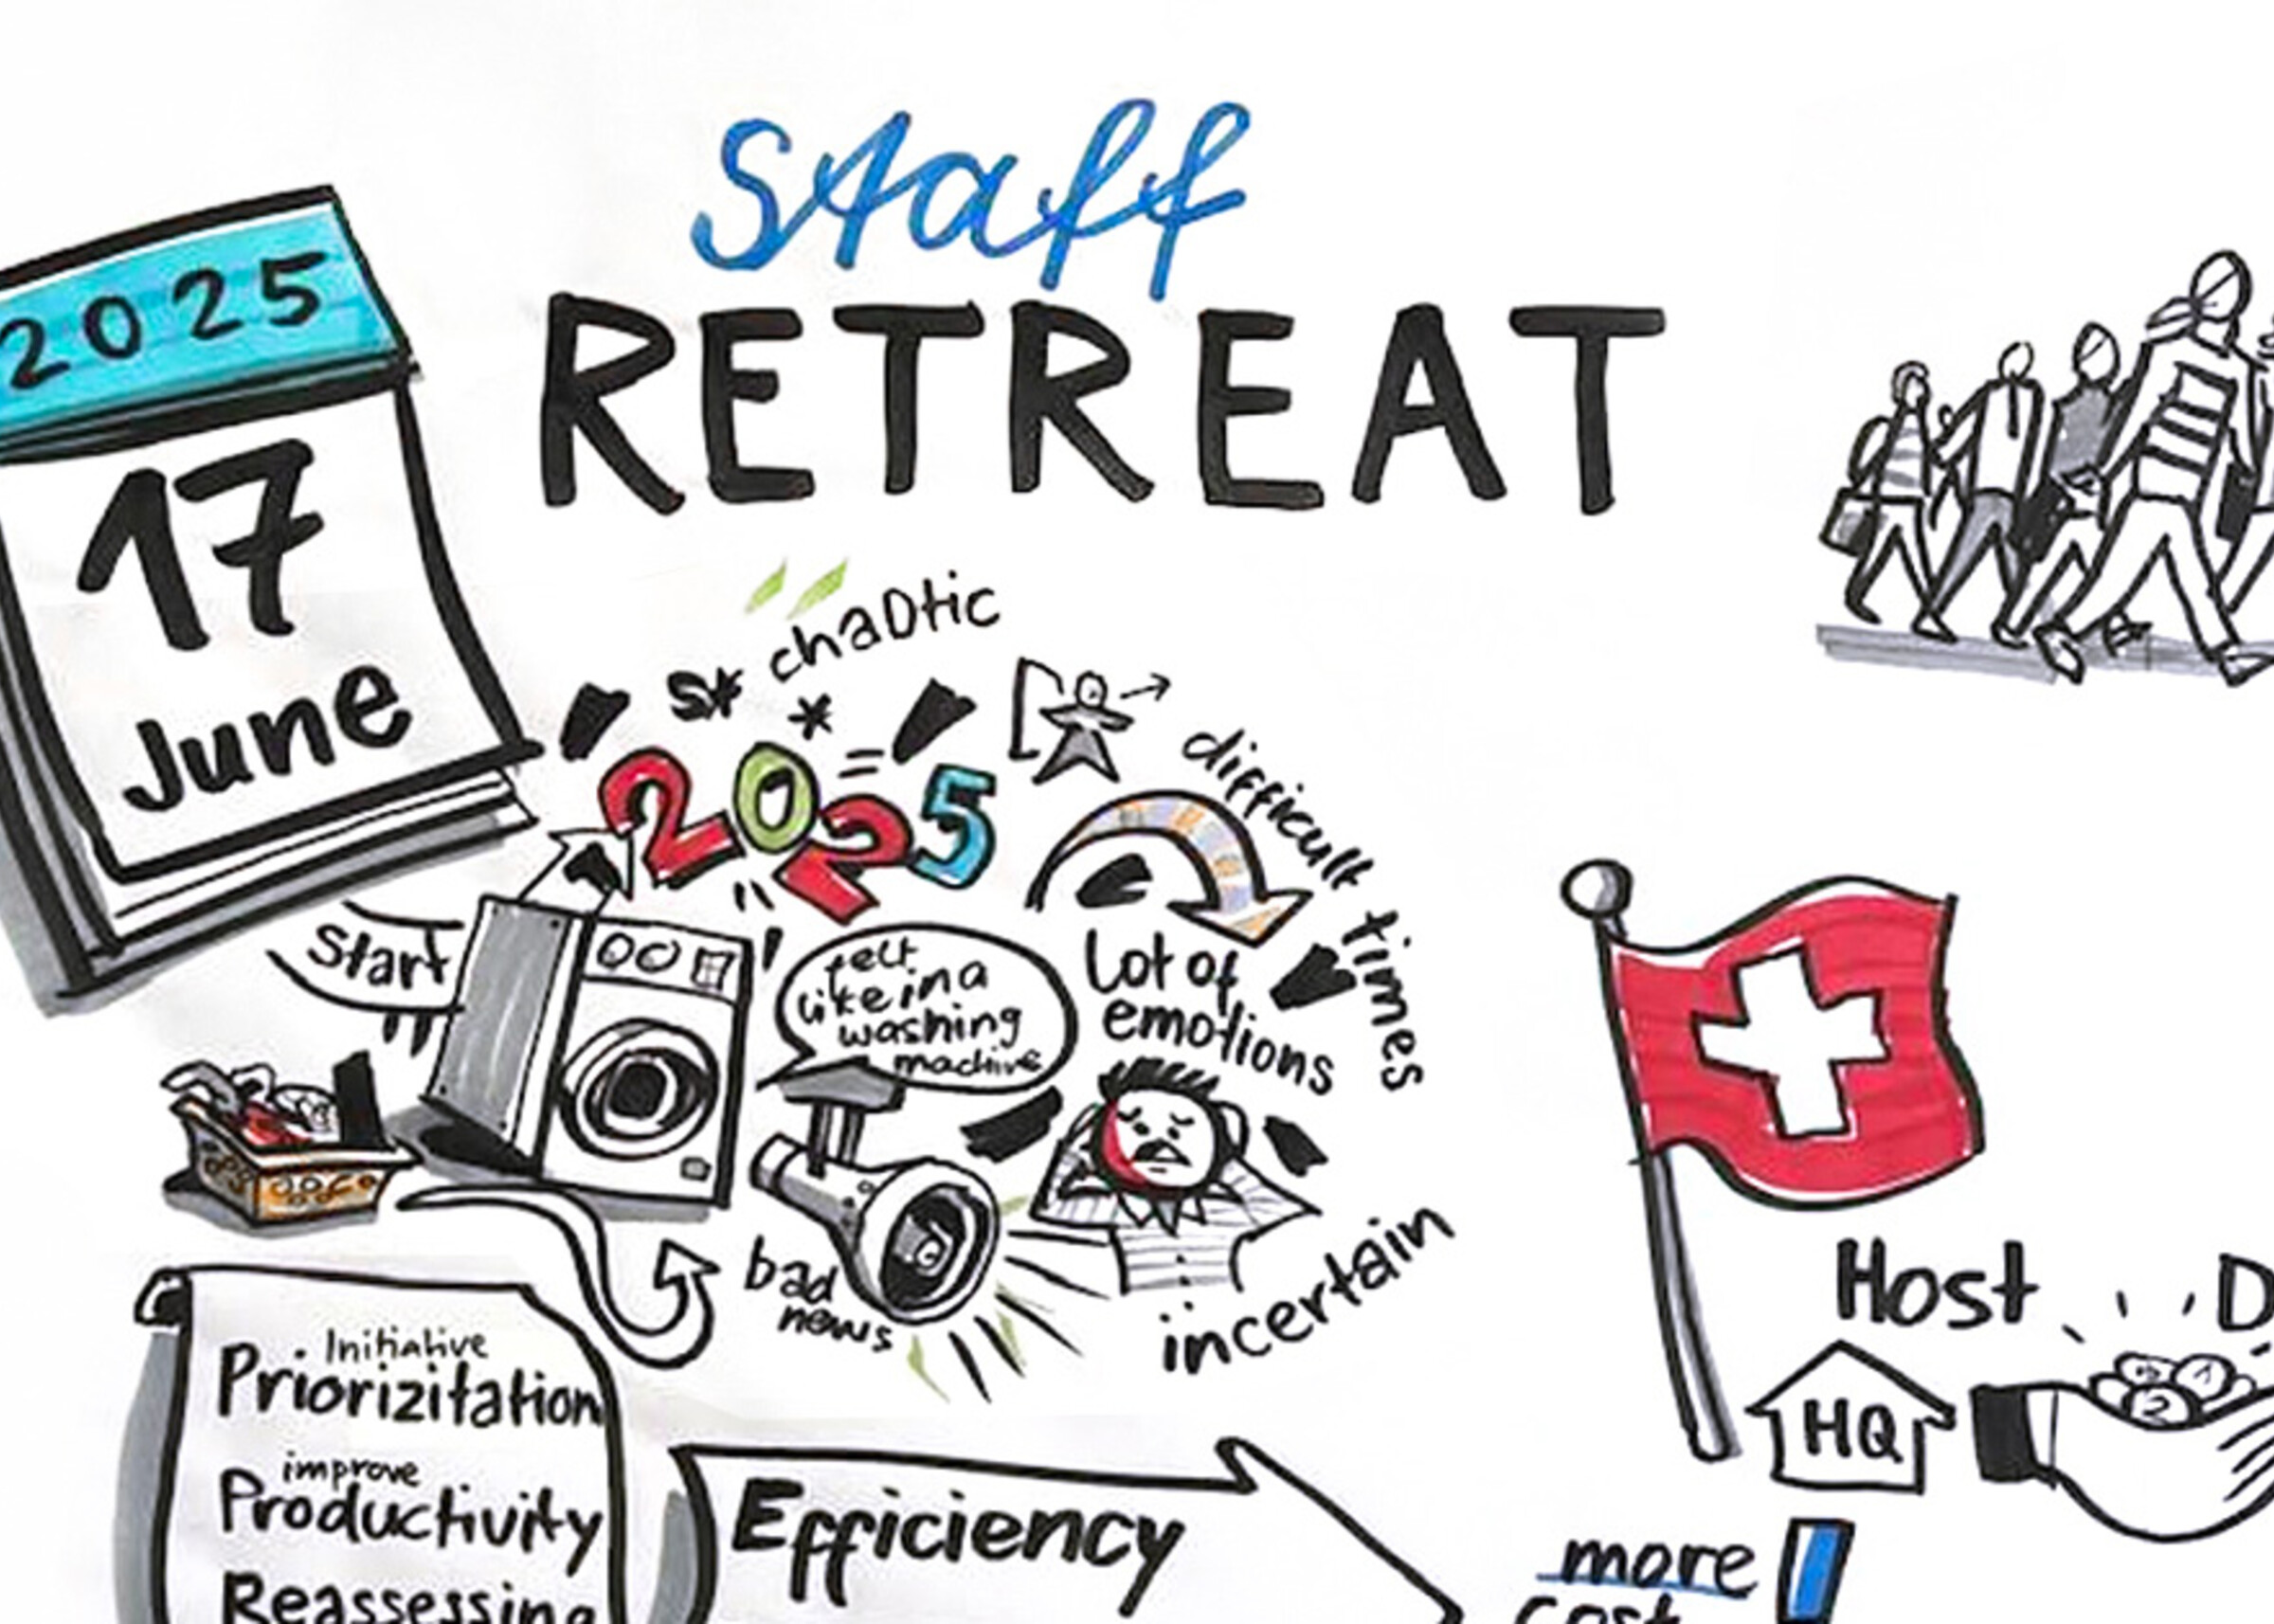 Staff
RETREAT
2025
17
June
chaotic
s*
*
2025
difficult times
start
felt
like in a
washing
machine
Lot of
emotions
bad
news
incertain
Initiative
Priorizitation
improve
Productivity
Reassessing
Efficiency
Host
D
HQ
2
more
cost